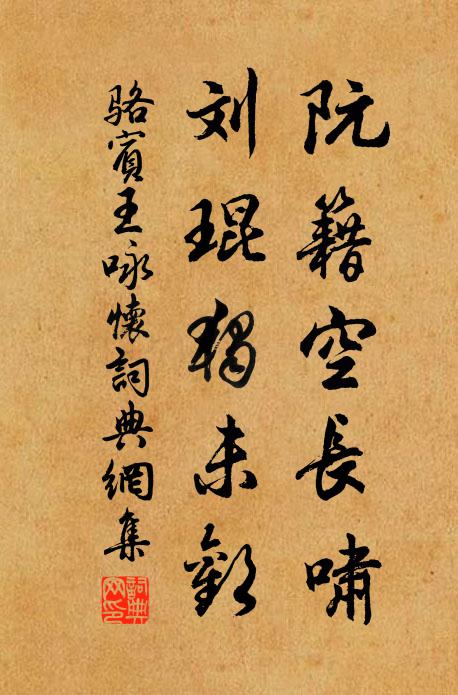 阮籍空長嘯
刘琨獨未歡
駱賓王咏懷詞典網集
詞典网印